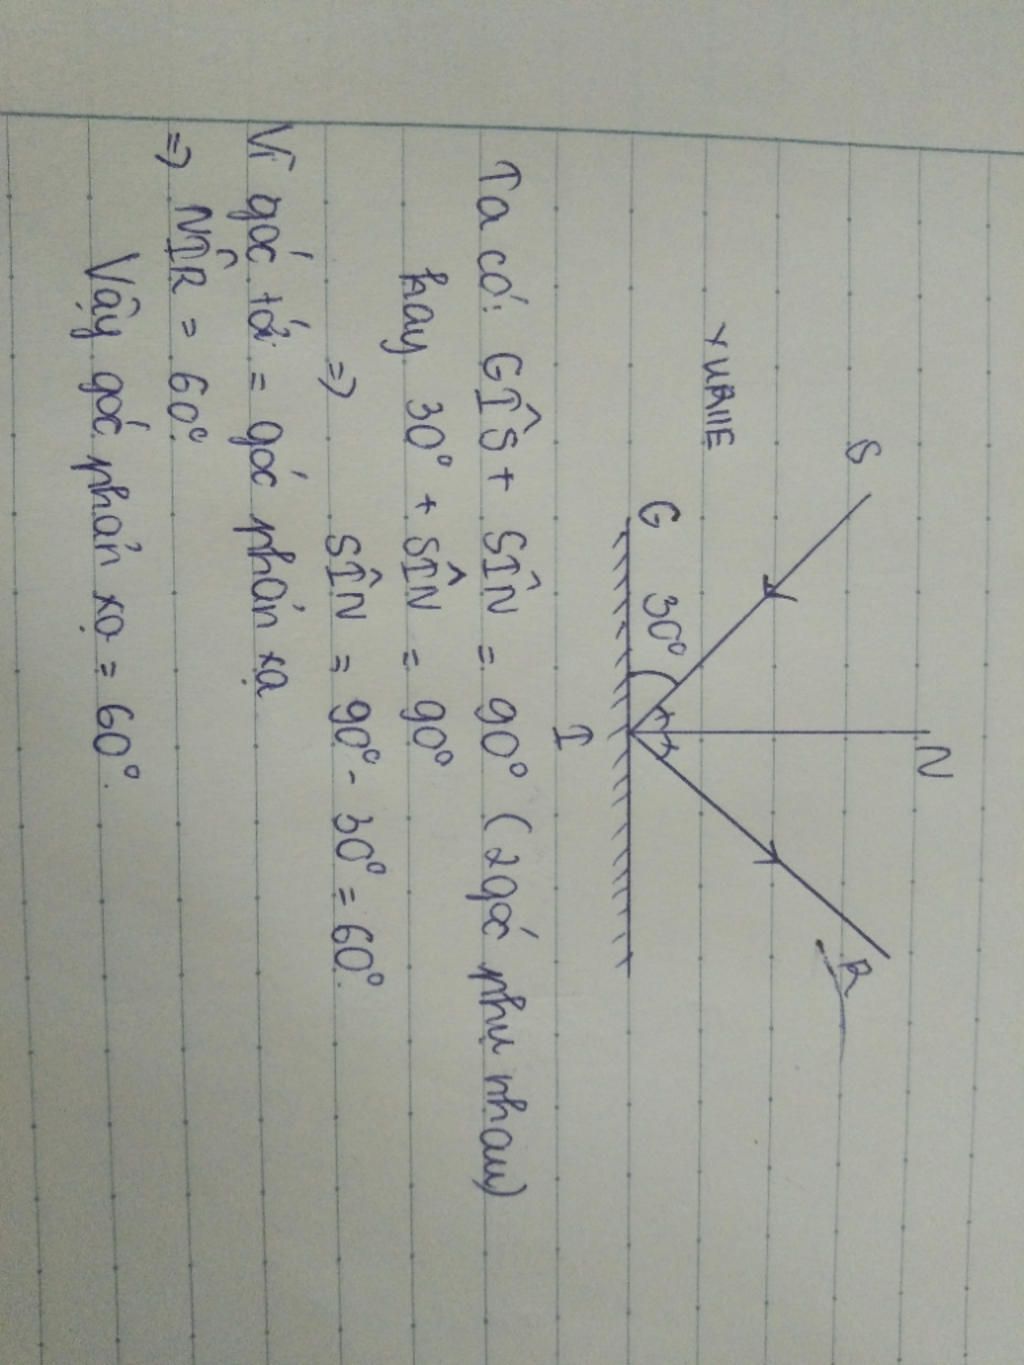 N
S
R
YURIIE
G 30°
I
Ta có: GÎS + SÎN = 90° (2 góc phụ nhau)
hay 30° + SÎN = 90°
=> SÎN = 90° - 30° = 60°.
Vì góc tới = góc phản xạ
=> NÎR = 60°
Vậy góc phản xạ = 60°.